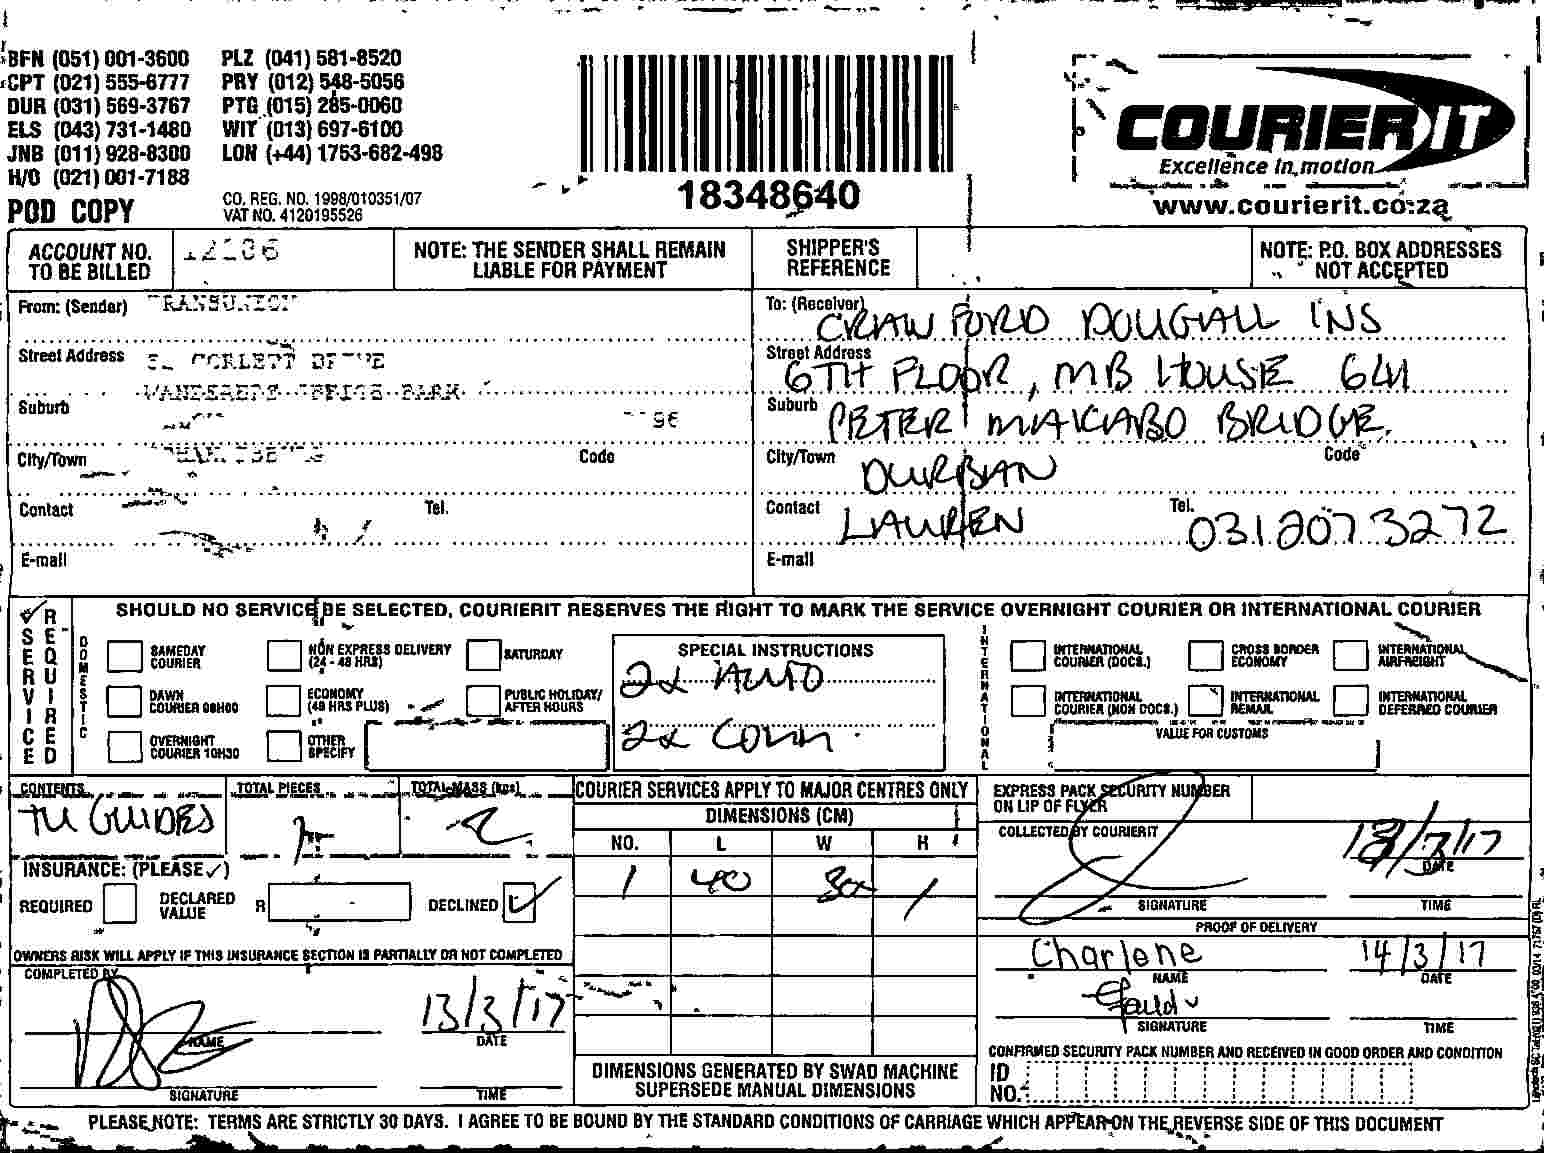 BFN (051) 001-3600 PLZ (041) 581-8520
CPT (021) 555-6777 PRY (012) 548-5056
DUR (031) 569-3767 PTG (015) 285-0060
ELS (043) 731-1480 WIT (013) 697-6100
JNB (011) 928-8300 LON (+44) 1753-682-498
H/O (021) 001-7188
POD COPY
CO. REG. NO. 1998/010351/07
VAT NO. 4120195526
18348640
COURIER IT
Excellence in motion
www.courierit.co.za
ACCOUNT NO. TO BE BILLED
NOTE: THE SENDER SHALL REMAIN LIABLE FOR PAYMENT
SHIPPER'S REFERENCE
NOTE: P.O. BOX ADDRESSES NOT ACCEPTED
From: (Sender) TRANSUNION
Street Address CORLETT DRIVE
WANDERERS OFFICE PARK
Suburb
City/Town Code
Contact Tel.
E-mail
To: (Receiver) CRAWFORD DOUGALL INS
Street Address 6TH FLOOR, MB HOUSE 641
Suburb PETER MAKABO BRIDGE
City/Town DURBAN Code
Contact LAUREN Tel. 0312073272
E-mail
SERVICE REQUIRED
SHOULD NO SERVICE BE SELECTED, COURIERIT RESERVES THE RIGHT TO MARK THE SERVICE OVERNIGHT COURIER OR INTERNATIONAL COURIER
DOMESTIC
SAMEDAY COURIER
NON EXPRESS DELIVERY (24 - 48 HRS)
SATURDAY
DAWN COURIER 08H00
ECONOMY (48 HRS PLUS)
PUBLIC HOLIDAY/ AFTER HOURS
OVERNIGHT COURIER 10H30
OTHER SPECIFY
SPECIAL INSTRUCTIONS
2x AUTO
2x COMM.
INTERNATIONAL
INTERNATIONAL COURIER (DOCS.)
CROSS BORDER ECONOMY
INTERNATIONAL AIRFREIGHT
INTERNATIONAL COURIER (NON DOCS.)
INTERNATIONAL REMAIL
INTERNATIONAL DEFERRED COURIER
VALUE FOR CUSTOMS
CONTENTS TU GUIDES
TOTAL PIECES
TOTAL MASS (kgs) 2
INSURANCE: (PLEASE ✓)
REQUIRED DECLARED VALUE R DECLINED ✓
OWNERS RISK WILL APPLY IF THIS INSURANCE SECTION IS PARTIALLY OR NOT COMPLETED
COMPLETED BY
NAME 13/3/17 DATE
SIGNATURE TIME
COURIER SERVICES APPLY TO MAJOR CENTRES ONLY
DIMENSIONS (CM)
NO. L W H
1 40 30 1
DIMENSIONS GENERATED BY SWAD MACHINE SUPERSEDE MANUAL DIMENSIONS
EXPRESS PACK SECURITY NUMBER ON LIP OF FLYER
COLLECTED BY COURIERIT
13/3/17 DATE
SIGNATURE TIME
PROOF OF DELIVERY
Charlene 14/3/17
NAME DATE
SIGNATURE TIME
CONFIRMED SECURITY PACK NUMBER AND RECEIVED IN GOOD ORDER AND CONDITION
ID NO.
PLEASE NOTE: TERMS ARE STRICTLY 30 DAYS. I AGREE TO BE BOUND BY THE STANDARD CONDITIONS OF CARRIAGE WHICH APPEAR ON THE REVERSE SIDE OF THIS DOCUMENT